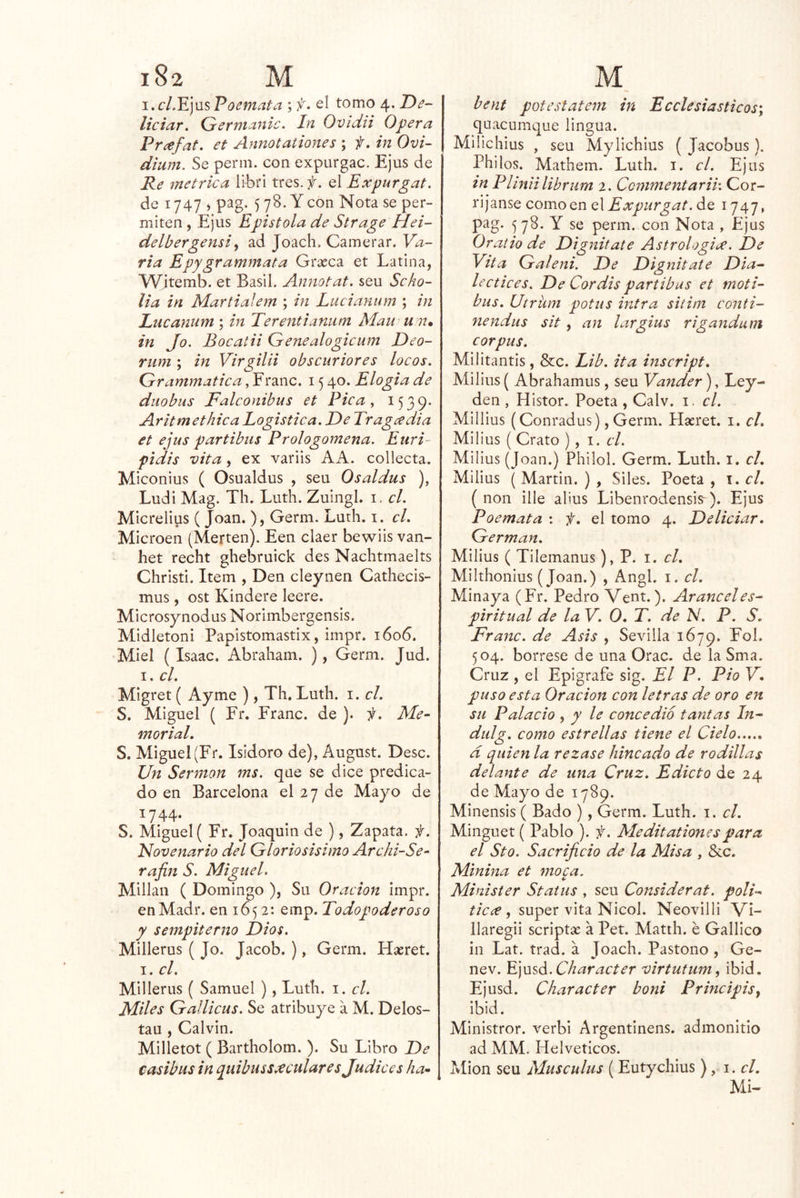 182 M
1.cl.Ejus Poemata ; ℣. el tomo 4. De-
liciar. Germanic. In Ovidii Opera
Præfat. et Annotationes ; ℣. in Ovi-
dium. Se perm. con expurgac. Ejus de
Re metrica libri tres. ℣. el Expurgat.
de 1747 , pag. 578. Y con Nota se per-
miten , Ejus Epistola de Strage Hei-
delbergensi, ad Joach. Camerar. Va-
ria Epygrammata Græca et Latina,
Witemb. et Basil. Annotat. seu Scho-
lia in Martialem ; in Lucianum ; in
Lucanum ; in Terentianum Mau un.
in Jo. Bocatii Genealogicum Deo-
rum ; in Virgilii obscuriores locos.
Grammatica, Franc. 1540. Elogia de
duobus Falconibus et Pica, 1539.
Aritmethica Logistica. De Tragœdia
et ejus partibus Prologomena. Euri-
pidis vita, ex variis AA. collecta.
Miconius ( Osualdus , seu Osaldus ),
Ludi Mag. Th. Luth. Zuingl. 1. cl.
Micrelius ( Joan. ), Germ. Luth. 1. cl.
Microen (Merten). Een claer bewiis van-
het recht ghebruick des Nachtmaelts
Christi. Item , Den cleynen Cathecis-
mus , ost Kindere leere.
Microsynodus Norimbergensis.
Midletoni Papistomastix, impr. 1606.
Miel ( Isaac. Abraham. ) , Germ. Jud.
1. cl.
Migret ( Ayme ) , Th. Luth. 1. cl.
S. Miguel ( Fr. Franc. de ). ℣. Me-
morial.
S. Miguel (Fr. Isidoro de), August. Desc.
Un Sermon ms. que se dice predica-
do en Barcelona el 27 de Mayo de
1744.
S. Miguel ( Fr. Joaquin de ) , Zapata. ℣.
Novenario del Gloriosisimo Archi-Se-
rafin S. Miguel.
Millan ( Domingo ), Su Oracion impr.
en Madr. en 1652: emp. Todopoderoso
y sempiterno Dios.
Millerus ( Jo. Jacob. ) , Germ. Hæret.
1. cl.
Millerus ( Samuel ) , Luth. 1. cl.
Miles Gallicus. Se atribuye à M. Delos-
tau , Calvin.
Milletot ( Bartholom. ). Su Libro De
casibus in quibus sæculares Judices ha-
M
bent potestatem in Ecclesiasticos;
quacumque lingua.
Milichius , seu Mylichius ( Jacobus ).
Philos. Mathem. Luth. 1. cl. Ejus
in Plinii librum 2. Commentarii: Cor-
rijanse como en el Expurgat. de 1747,
pag. 578. Y se perm. con Nota , Ejus
Oratio de Dignitate Astrologiæ. De
Vita Galeni. De Dignitate Dia-
lectices. De Cordis partibus et moti-
bus. Utrùm potus intra sitim conti-
nendus sit , an largius rigandum
corpus.
Militantis , &c. Lib. ita inscript.
Milius ( Abrahamus , seu Vander ), Ley-
den , Histor. Poeta , Calv. 1. cl.
Millius (Conradus) , Germ. Hæret. 1. cl.
Milius ( Crato ) , 1. cl.
Milius (Joan.) Philol. Germ. Luth. 1. cl.
Milius ( Martin. ) , Siles. Poeta , 1. cl.
( non ille alius Libenrodensis ). Ejus
Poemata : ℣. el tomo 4. Deliciar.
German.
Milius ( Tilemanus ), P. 1. cl.
Milthonius (Joan.) , Angl. 1. cl.
Minaya (Fr. Pedro Vent.). Arancel es-
piritual de la V. O. T. de N. P. S.
Franc. de Asis , Sevilla 1679. Fol.
504. borrese de una Orac. de la Sma.
Cruz , el Epigrafe sig. El P. Pio V.
puso esta Oracion con letras de oro en
su Palacio , y le concedió tantas In-
dulg. como estrellas tiene el Cielo.....
á quien la rezase hincado de rodillas
delante de una Cruz. Edicto de 24
de Mayo de 1789.
Minensis ( Bado ) , Germ. Luth. 1. cl.
Minguet ( Pablo ). ℣. Meditationes para
el Sto. Sacrificio de la Misa , &c.
Minina et moça.
Minister Status , seu Considerat. poli-
ticæ , super vita Nicol. Neovilli Vi-
llaregii scriptæ à Pet. Matth. è Gallico
in Lat. trad. à Joach. Pastono , Ge-
nev. Ejusd. Character virtutum, ibid.
Ejusd. Character boni Principis,
ibid.
Ministror. verbi Argentinens. admonitio
ad MM. Helveticos.
Mion seu Musculus ( Eutychius ) , 1. cl.
Mi-